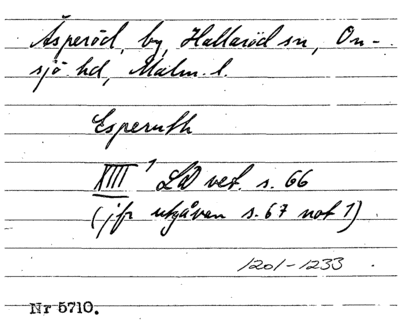 Äsperöd, by, Hallaröd sn, On-
sjö hd, Malm. l.
Esperuth
XIII 1 LD vet. s. 66
(jfr utgåvan s. 67 not 1).
1201-1233.
Nr 5710.